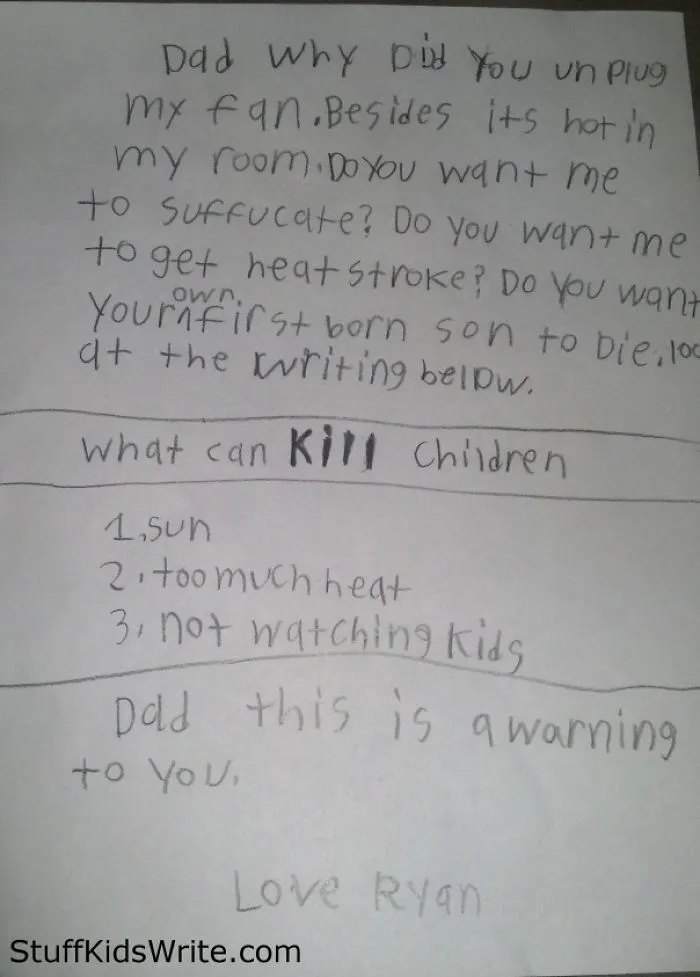 Dad why Did You unplug
my fan.Besides its hot in
my room.Do You want me
to suffucate? Do you want me
to get heat stroke? Do You want
Your own first born son to Die.loo
at the writing below.
What can Kill Children
1,sun
2, too much heat
3, not watching kids
Dad this is a warning
to you.
Love Ryan
StuffKidsWrite.com